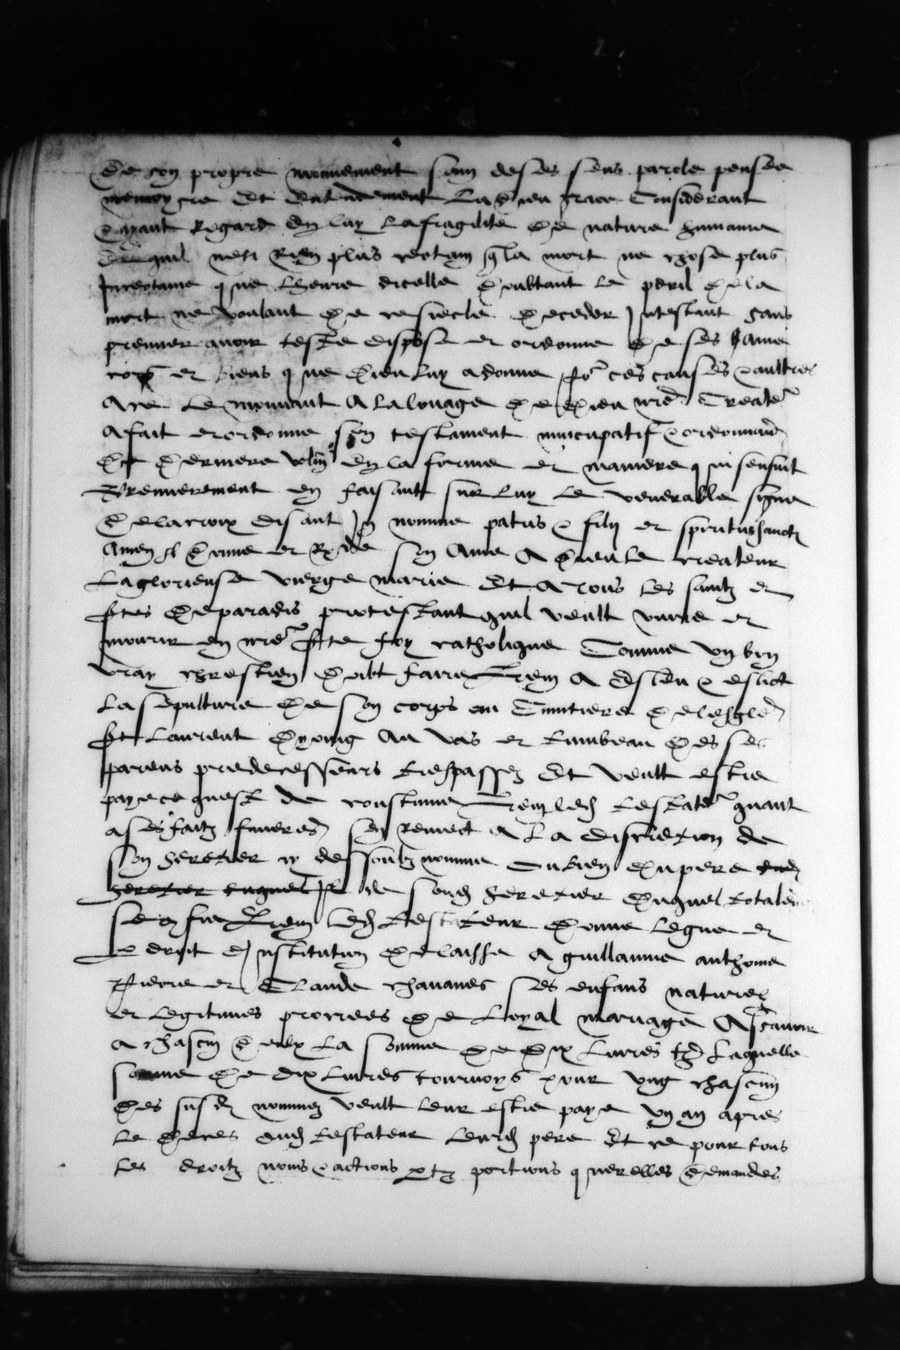 De son propre mouvement sain de ses sens parolle pensee
memoyre Et Entendement La dieu grace Considerant
et ayant Regard En luy La fragilite De nature humaine
Et quil nest Rien plus certain q la mort ne chose plus
Incertaine que lheure dicelle Doubtant le peril De la
mort ne voulant De ce siecle Deceder Intestant sans
premier avoir teste dispose et ordonne De ses Hame
corps et biens que Dieu luy a donne Por ces causes & aultres
A ce Le mouvant A la louage De Dieu nre Creater
A fait et ordonne son testament nuncupatif & ordonnance
De Derniere volunte En la forme et maniere qui sensuit
Premierement en faisant sur luy le venerable signe
De la croix disant In nomine patris & filii et spiritus sancti
Amen Il Donne et Rend son Ame A Dieu le createur
La glorieuse vierge marie Et A tous les saintz et
sctes De paradis protestant quil veult vivre et
mourir en nre scte foy catholique Comme vng bon
vray chrestien Doibt faire Item A esleu & eslict
La sepulture De son corps au Cimitiere De leglise
sct Laurent Doing Au vas et tumbeau De ses
parens predecesseurs trespassez Et veult estre
paye ce quest de coustume Item led testater quant
a ses faitz funeres sen Remect A La discretion de
son heretier cy dessoubz nomme Ou bien Du pere
heretier de sond heretier Duquel totalement
se confie Item led Testateur Donne legue et
p droit dInstitution Delaisse A guillaume anthoine
Pierre et Claude chavanes ses enfans naturelz
et legitimes procrees De Loyal mariage Ascavoir
A chascun Deulx La somme De Dix Livres tz Laquelle
somme De dix Livres tournoys pour vng chascun
Des susd nommez veult leur estre paye vn an apres
le Deces dud testateur Leurd pere Et ce pour tous
les droitz noms & actions ptz portions querelles Demandes